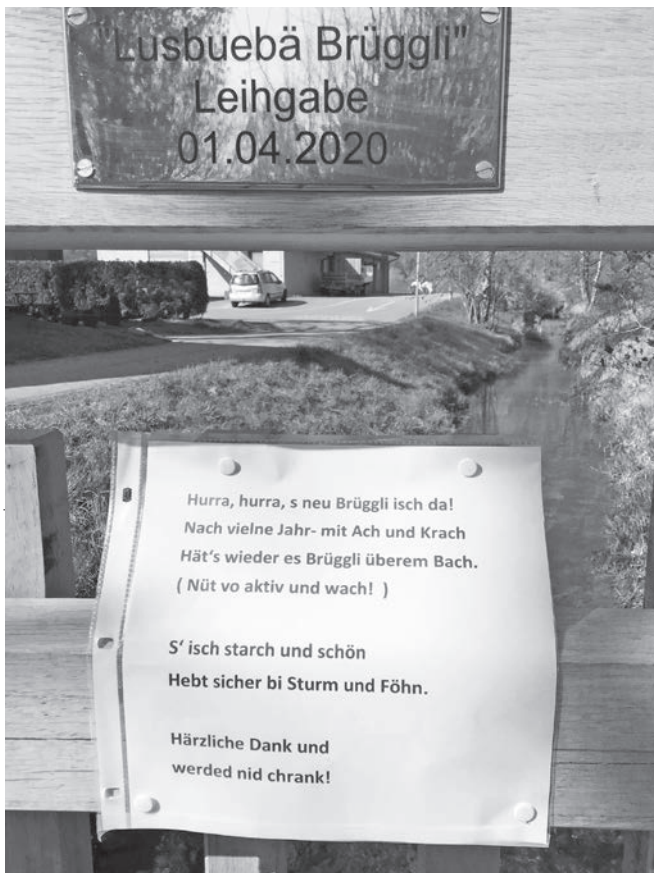 "Lusbuebä Brüggli"
Leihgabe
01.04.2020
Hurra, hurra, s neu Brüggli isch da!
Nach vielne Jahr- mit Ach und Krach
Hät's wieder es Brüggli überem Bach.
( Nüt vo aktiv und wach! )
S' isch starch und schön
Hebt sicher bi Sturm und Föhn.
Härzliche Dank und
werded nid chrank!